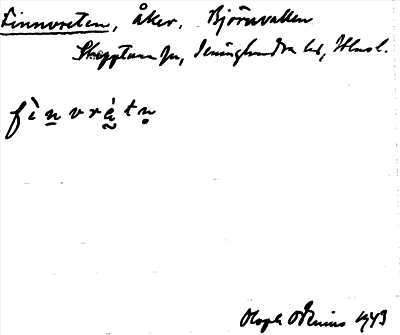 Finnvreten, åker, Björnvallen
Skepptuna sn, Seminghundra hd, Uppl.
fìnvrètn
Olof Odenius 1943